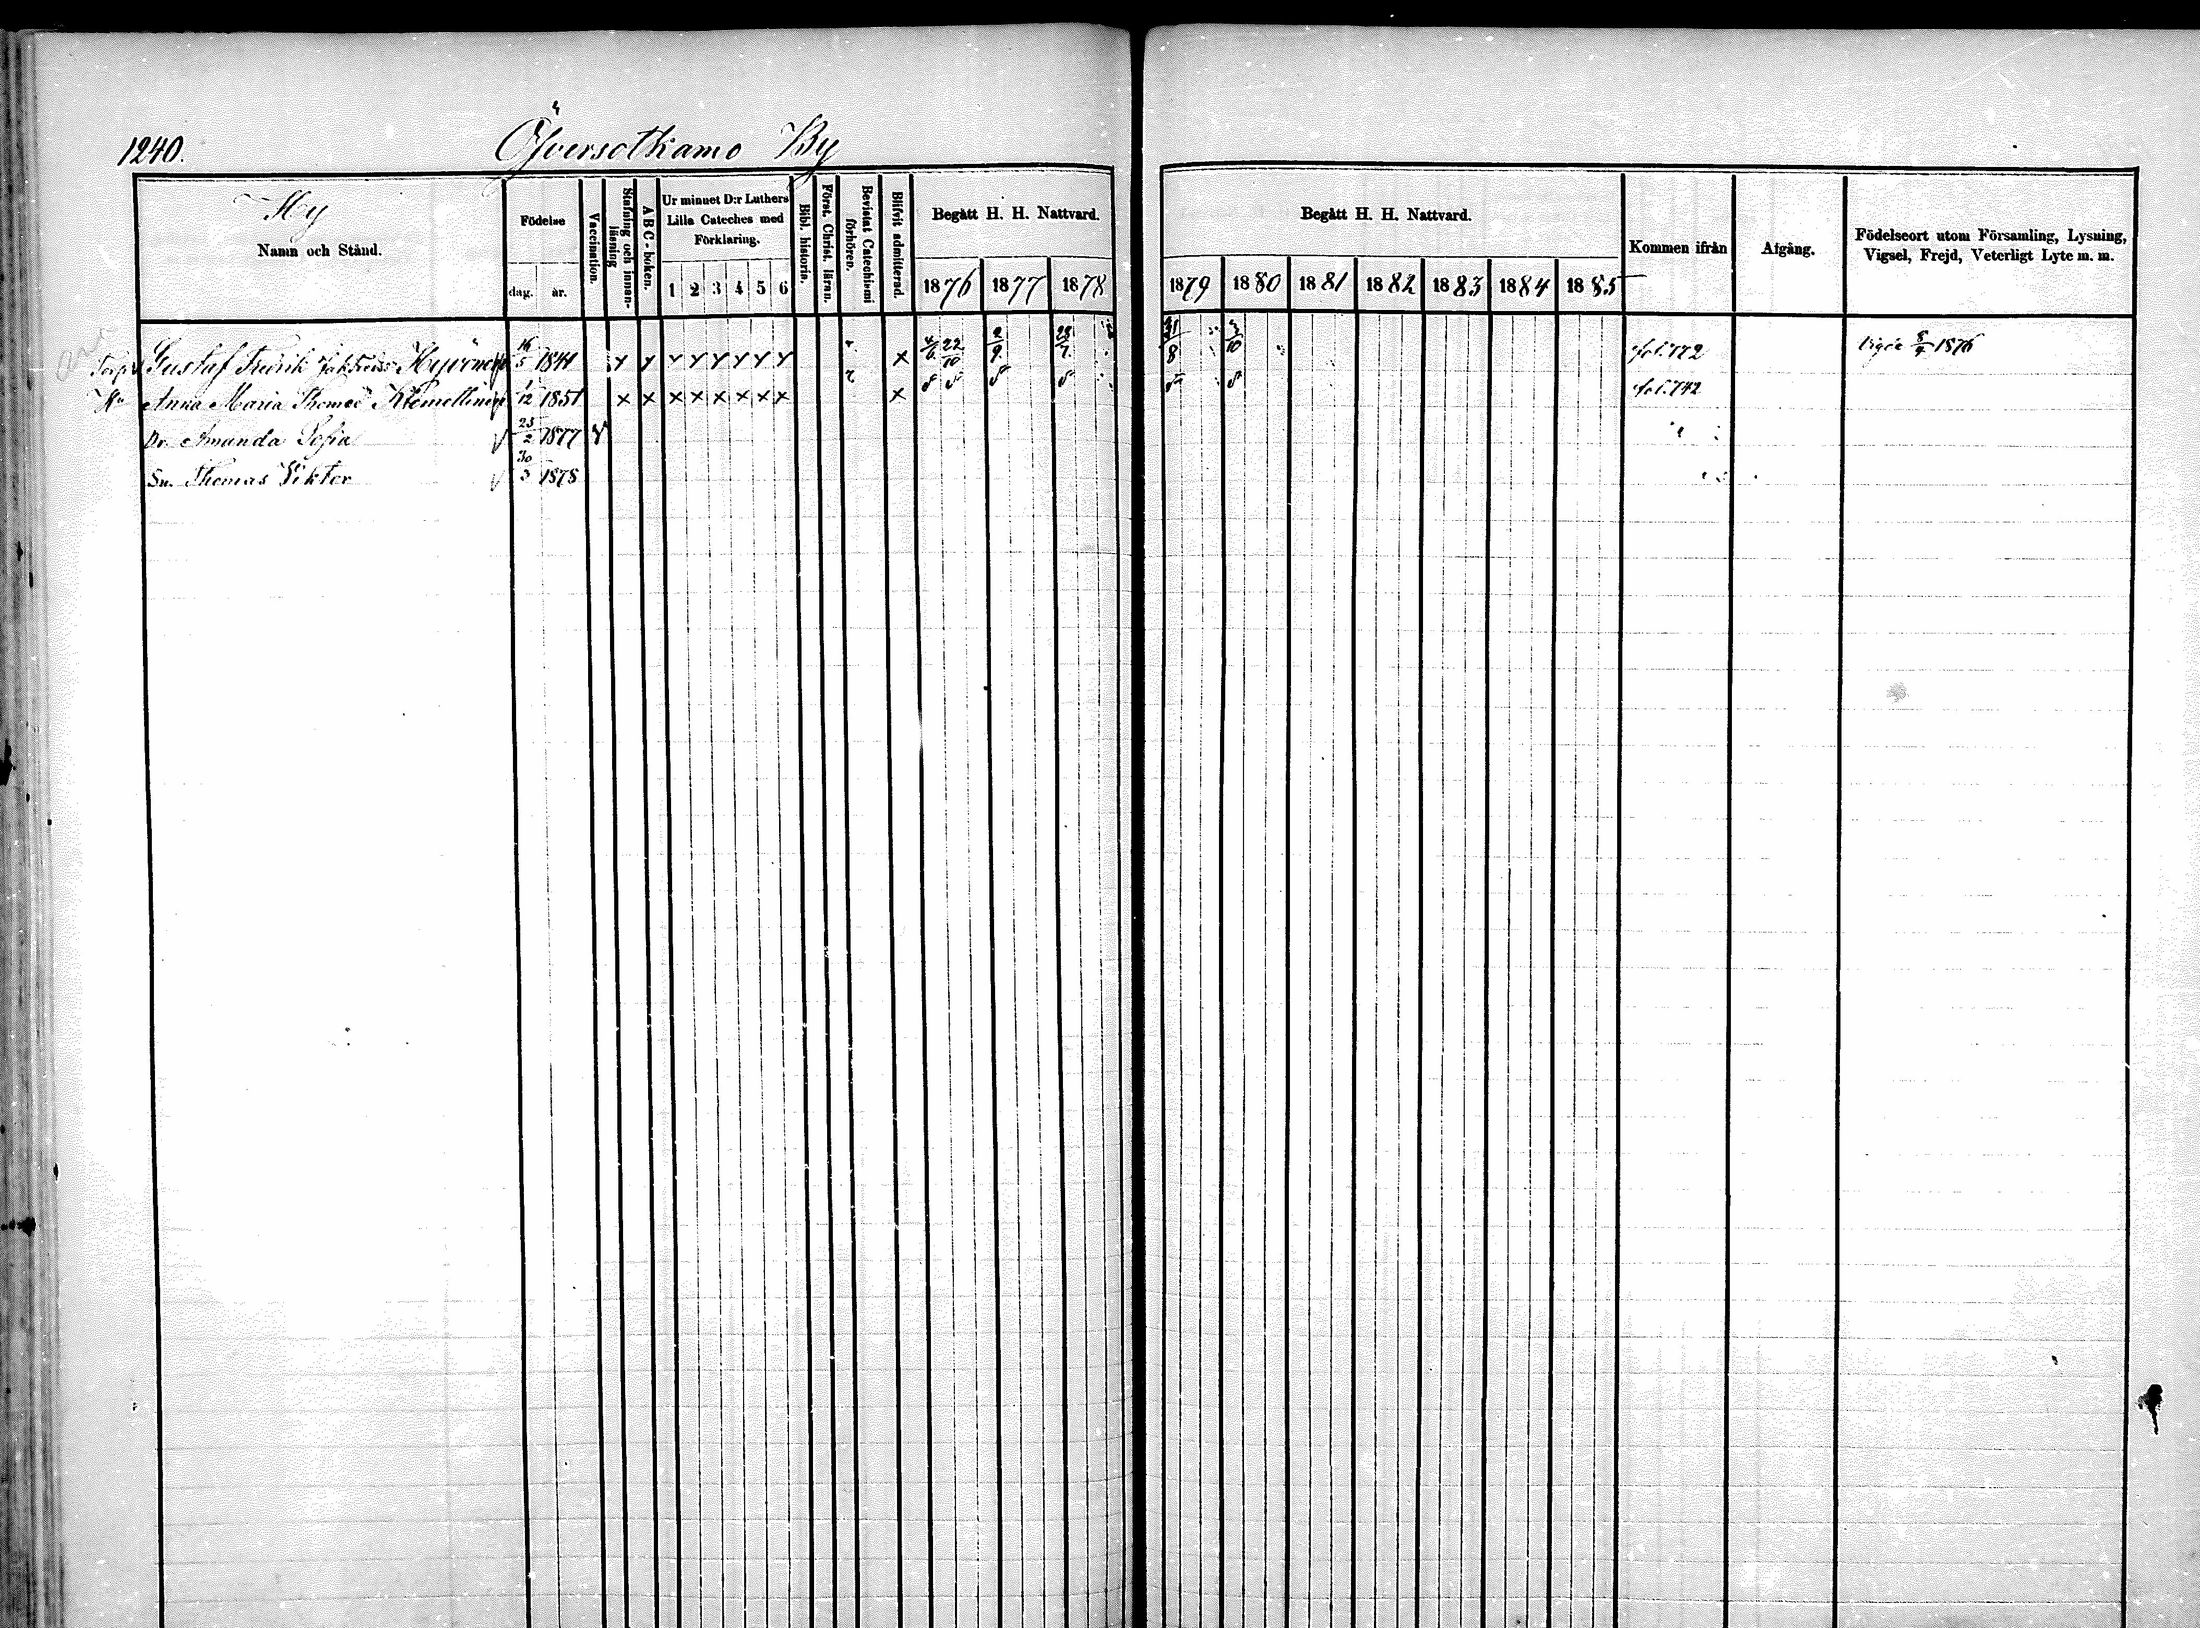 1240. Öfversotkamo By
My
Namn och Stånd.
Födelse
dag. år.
Vaccination.
Stafning och innan-läsning
A B C-boken.
Ur minnet D:r Luthers Lilla Cateches med Förklaring.
1 2 3 4 5 6
Bibl. historia.
Först. Christ. läran.
Bevistat Catechismi förhören.
Blifvit admitterad.
Begått H. H. Nattvard.
1876 1877 1878
Begått H. H. Nattvard.
1879 1880 1881 1882 1883 1884 1885
Kommen ifrån
Afgång.
Födelseort utom Församling, Lysning, Vigsel, Frejd, Veterligt Lyte m. m.
Torp. Gustaf Fredrik 16/5 1841 x x x x x x x x x 22/10 2/9 28/7 31/8 3/10 fol. 772 vigde 8/7 1876
Hu Anna Maria 1/12 1851 x x x x x x x x x fol. 742
Dr. Amanda Sofia 23/2 1877 v
Sn. Thomas Viktor 30/3 1878